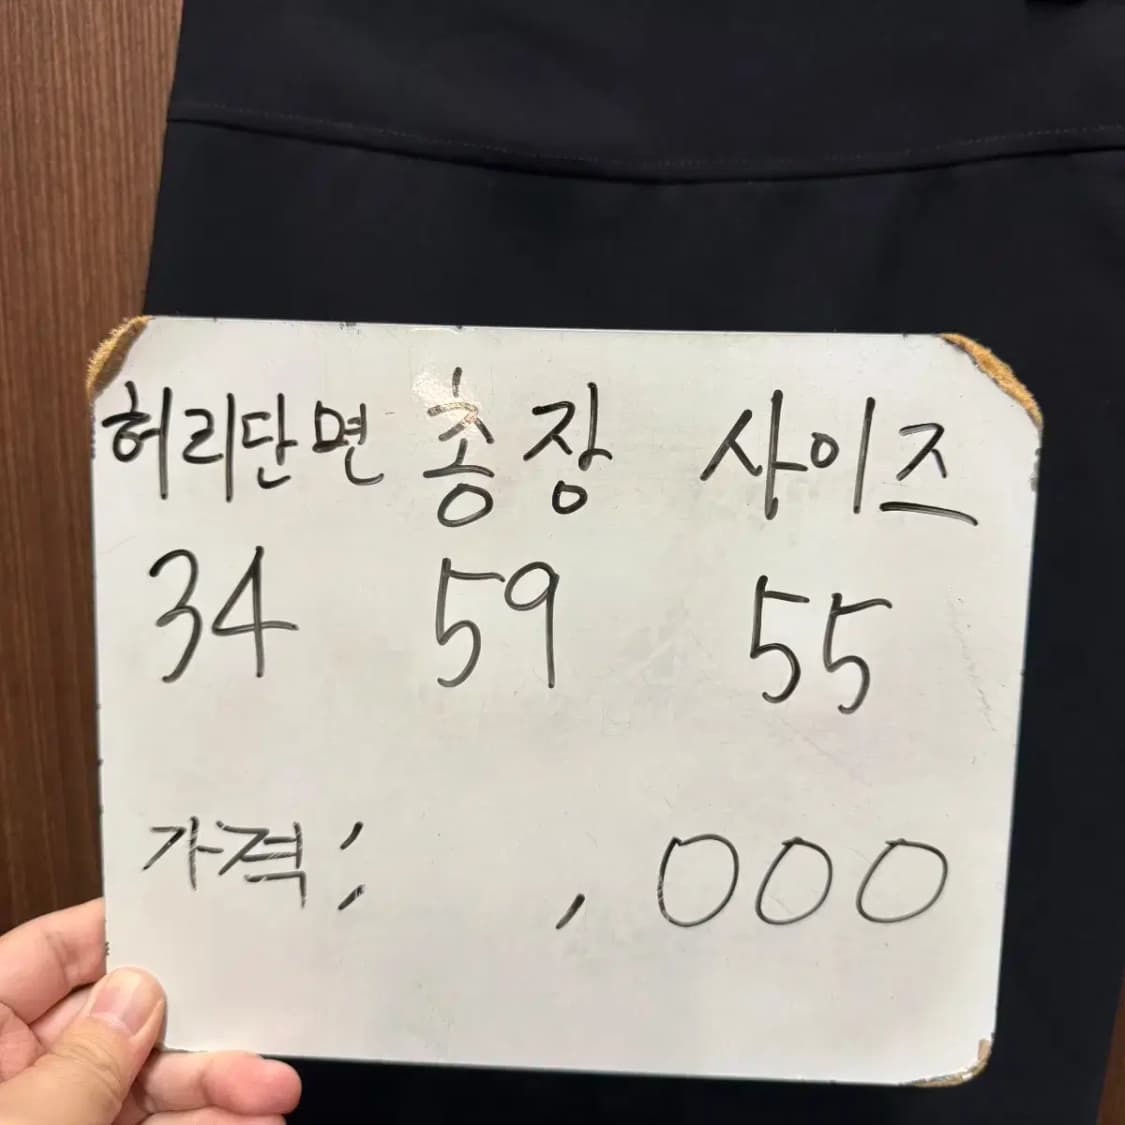 허리단면 총장 사이즈
34 59 55
가격: ,000